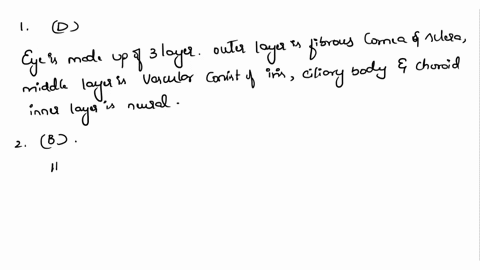 1. (D)
Eye is made up of 3 layer. outer layer is fibrous Cornea & sclera,
middle layer is Vascular Consist of iris, ciliary body & choroid
inner layer is neural.
2. (B).